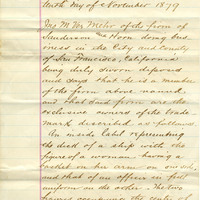 tenth day of November 1879
of the firm of
Sanderson and Horn doing bus
iness in the City and County
of San Francisco, California
being duly sworn deposes
and says that he is a member
of the firm above named,
and that said firm are the
exclusive owners of the trade
mark described as follows
An inside label representing
the deck of a ship with the
figure of a woman having a
in her arms on one side,
and that of an officer in full
uniform on the other. The two
figures occupying the center of